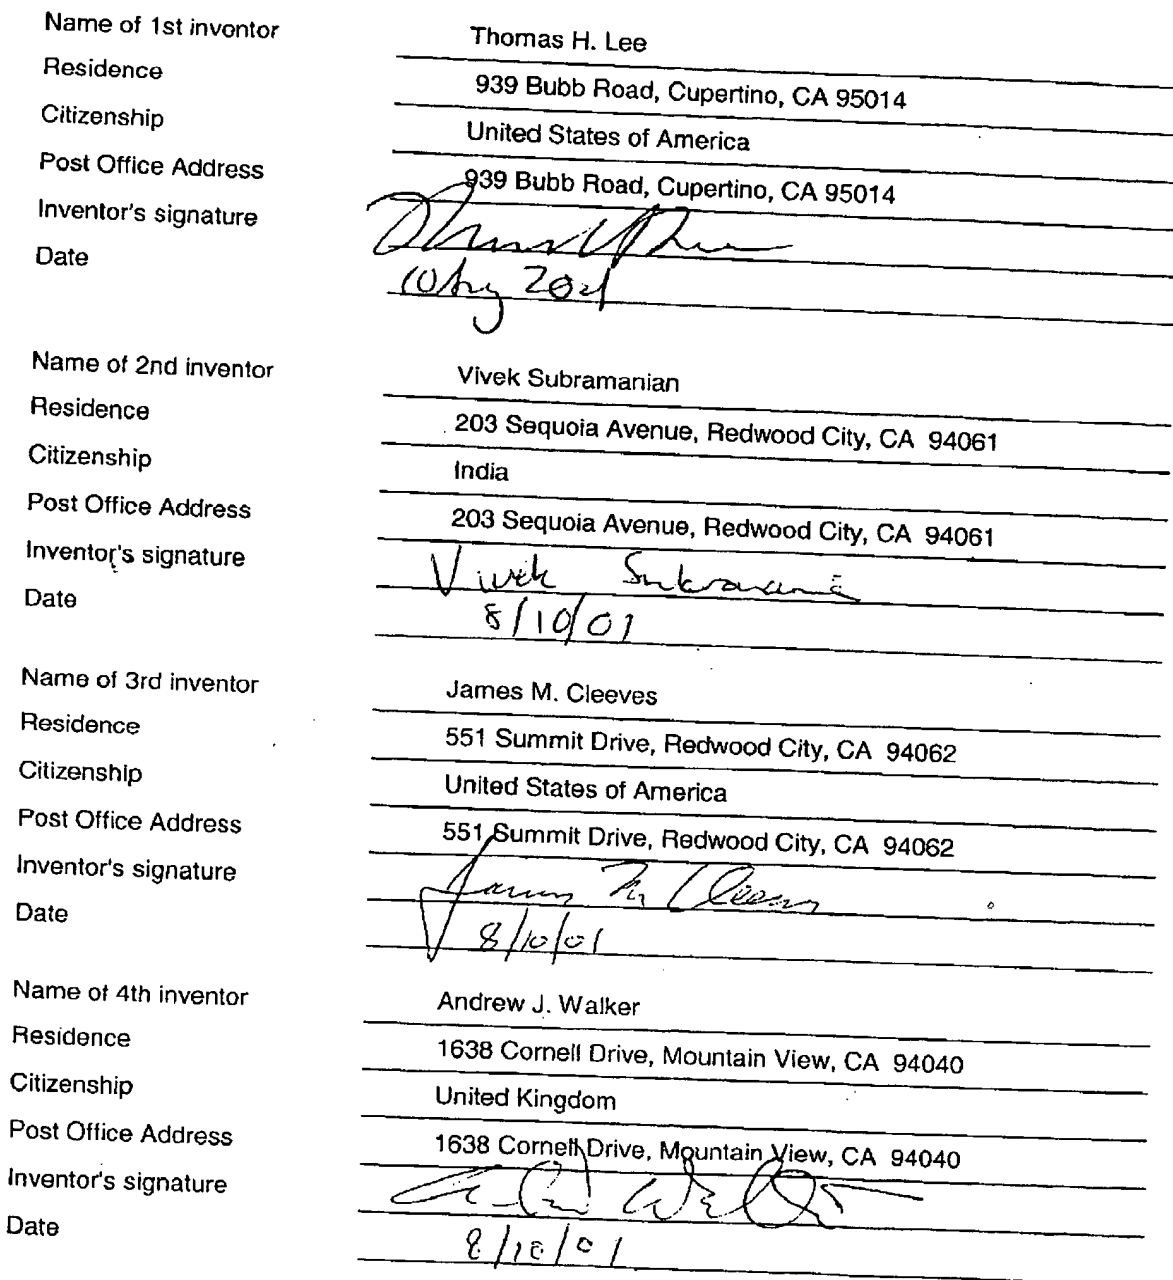 Name of 1st inventor Thomas H. Lee
Residence 939 Bubb Road, Cupertino, CA 95014
Citizenship United States of America
Post Office Address 939 Bubb Road, Cupertino, CA 95014
Inventor's signature
Date 10 Aug 2001
Name of 2nd inventor Vivek Subramanian
Residence 203 Sequoia Avenue, Redwood City, CA 94061
Citizenship India
Post Office Address 203 Sequoia Avenue, Redwood City, CA 94061
Inventor's signature Vivek Subramanian
Date 8/10/01
Name of 3rd inventor James M. Cleeves
Residence 551 Summit Drive, Redwood City, CA 94062
Citizenship United States of America
Post Office Address 551 Summit Drive, Redwood City, CA 94062
Inventor's signature James M Cleeves
Date 8/10/01
Name of 4th inventor Andrew J. Walker
Residence 1638 Cornell Drive, Mountain View, CA 94040
Citizenship United Kingdom
Post Office Address 1638 Cornell Drive, Mountain View, CA 94040
Inventor's signature
Date 8/10/01